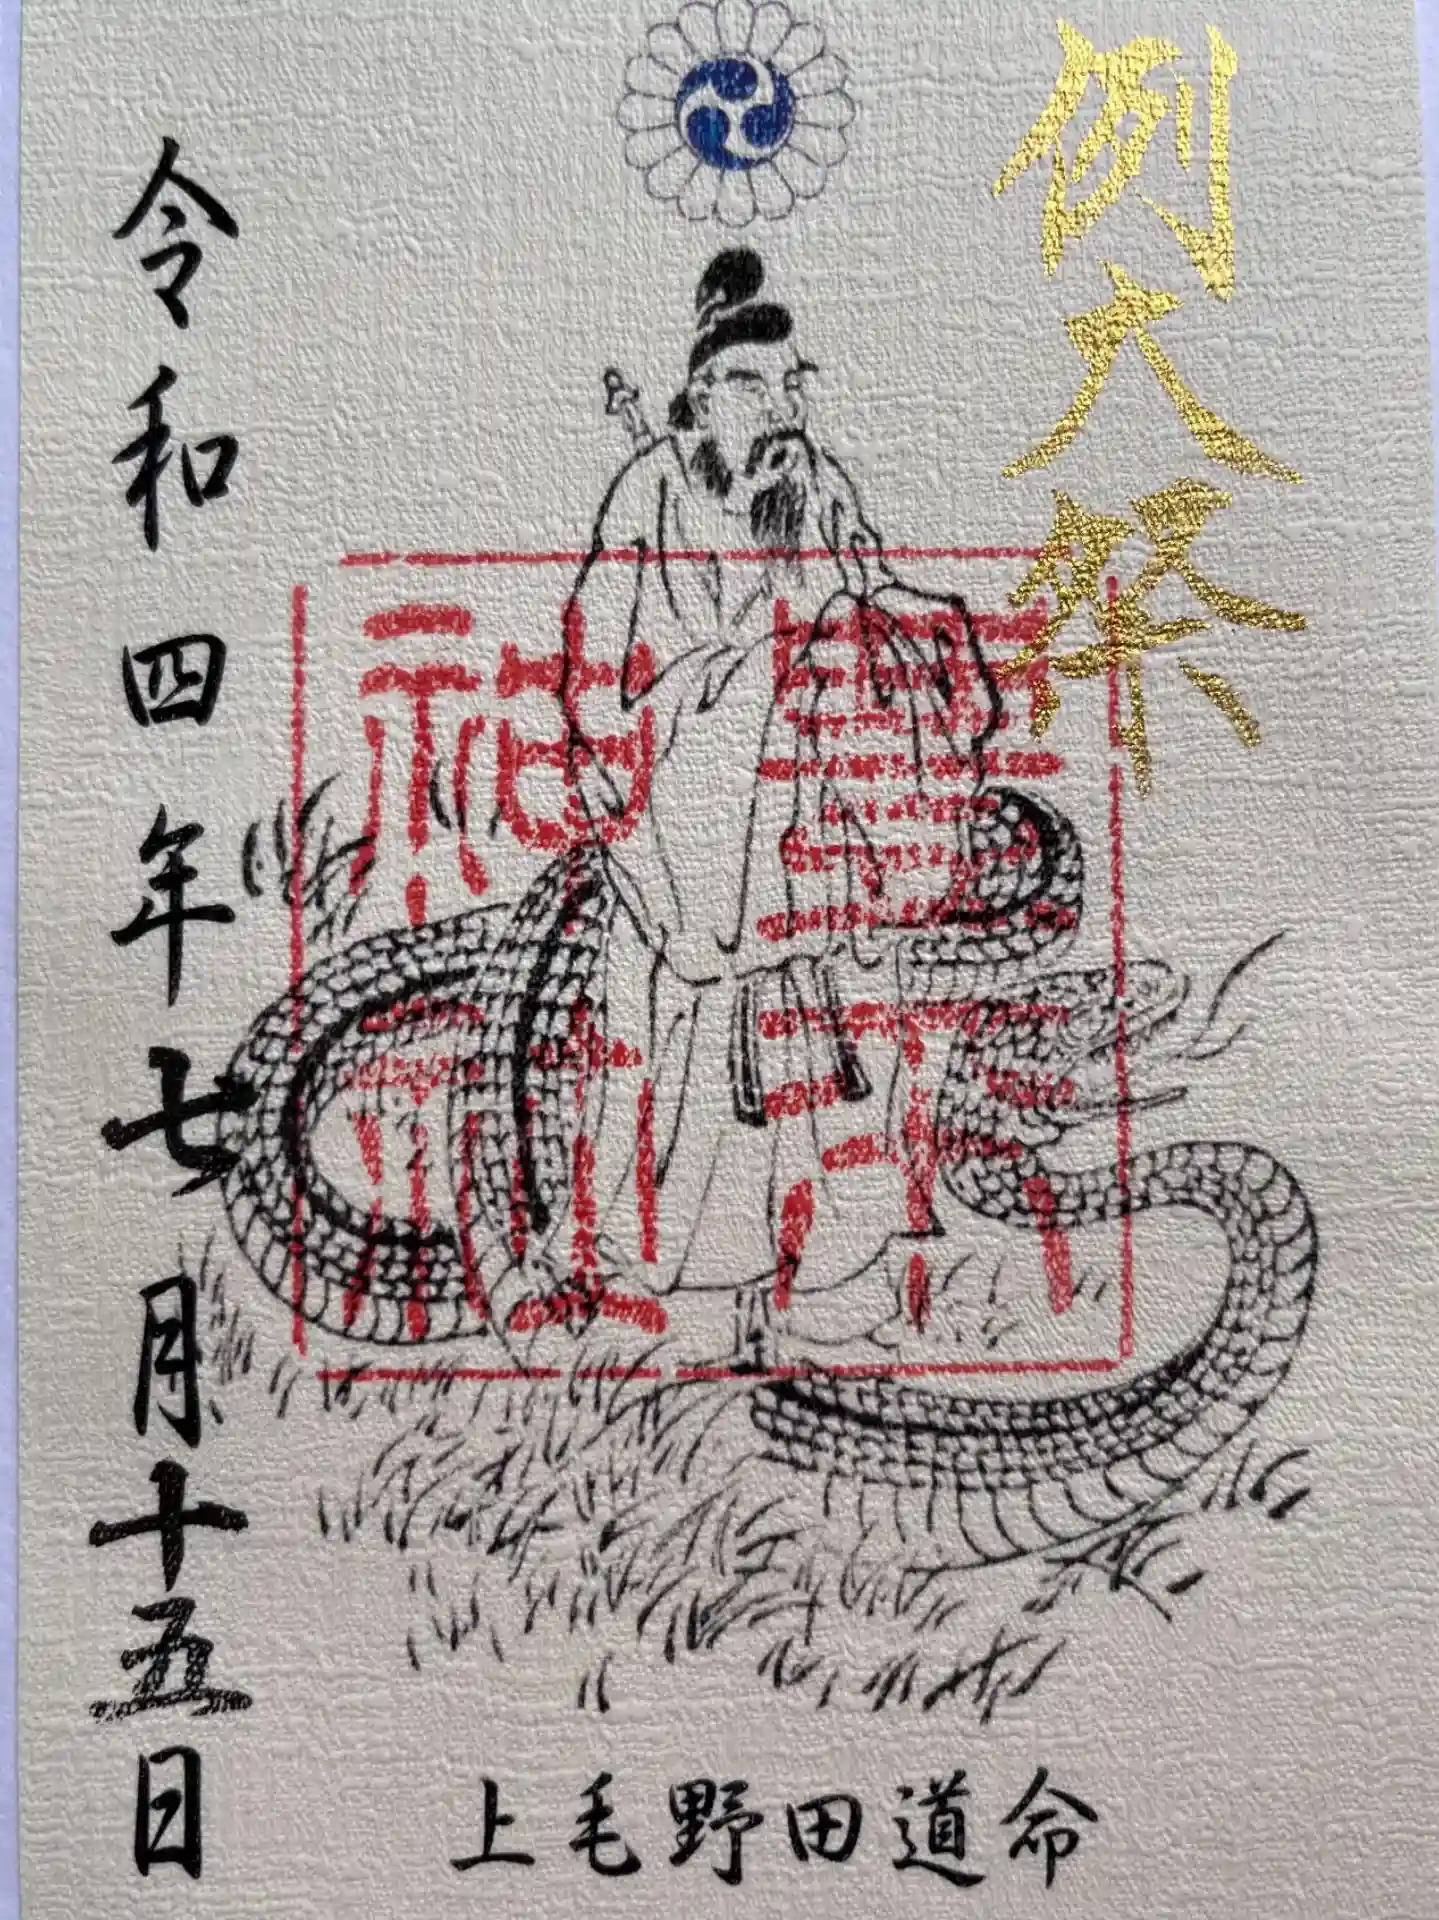 例大祭
豊平
神社
令和四年七月十五日
上毛野田道命